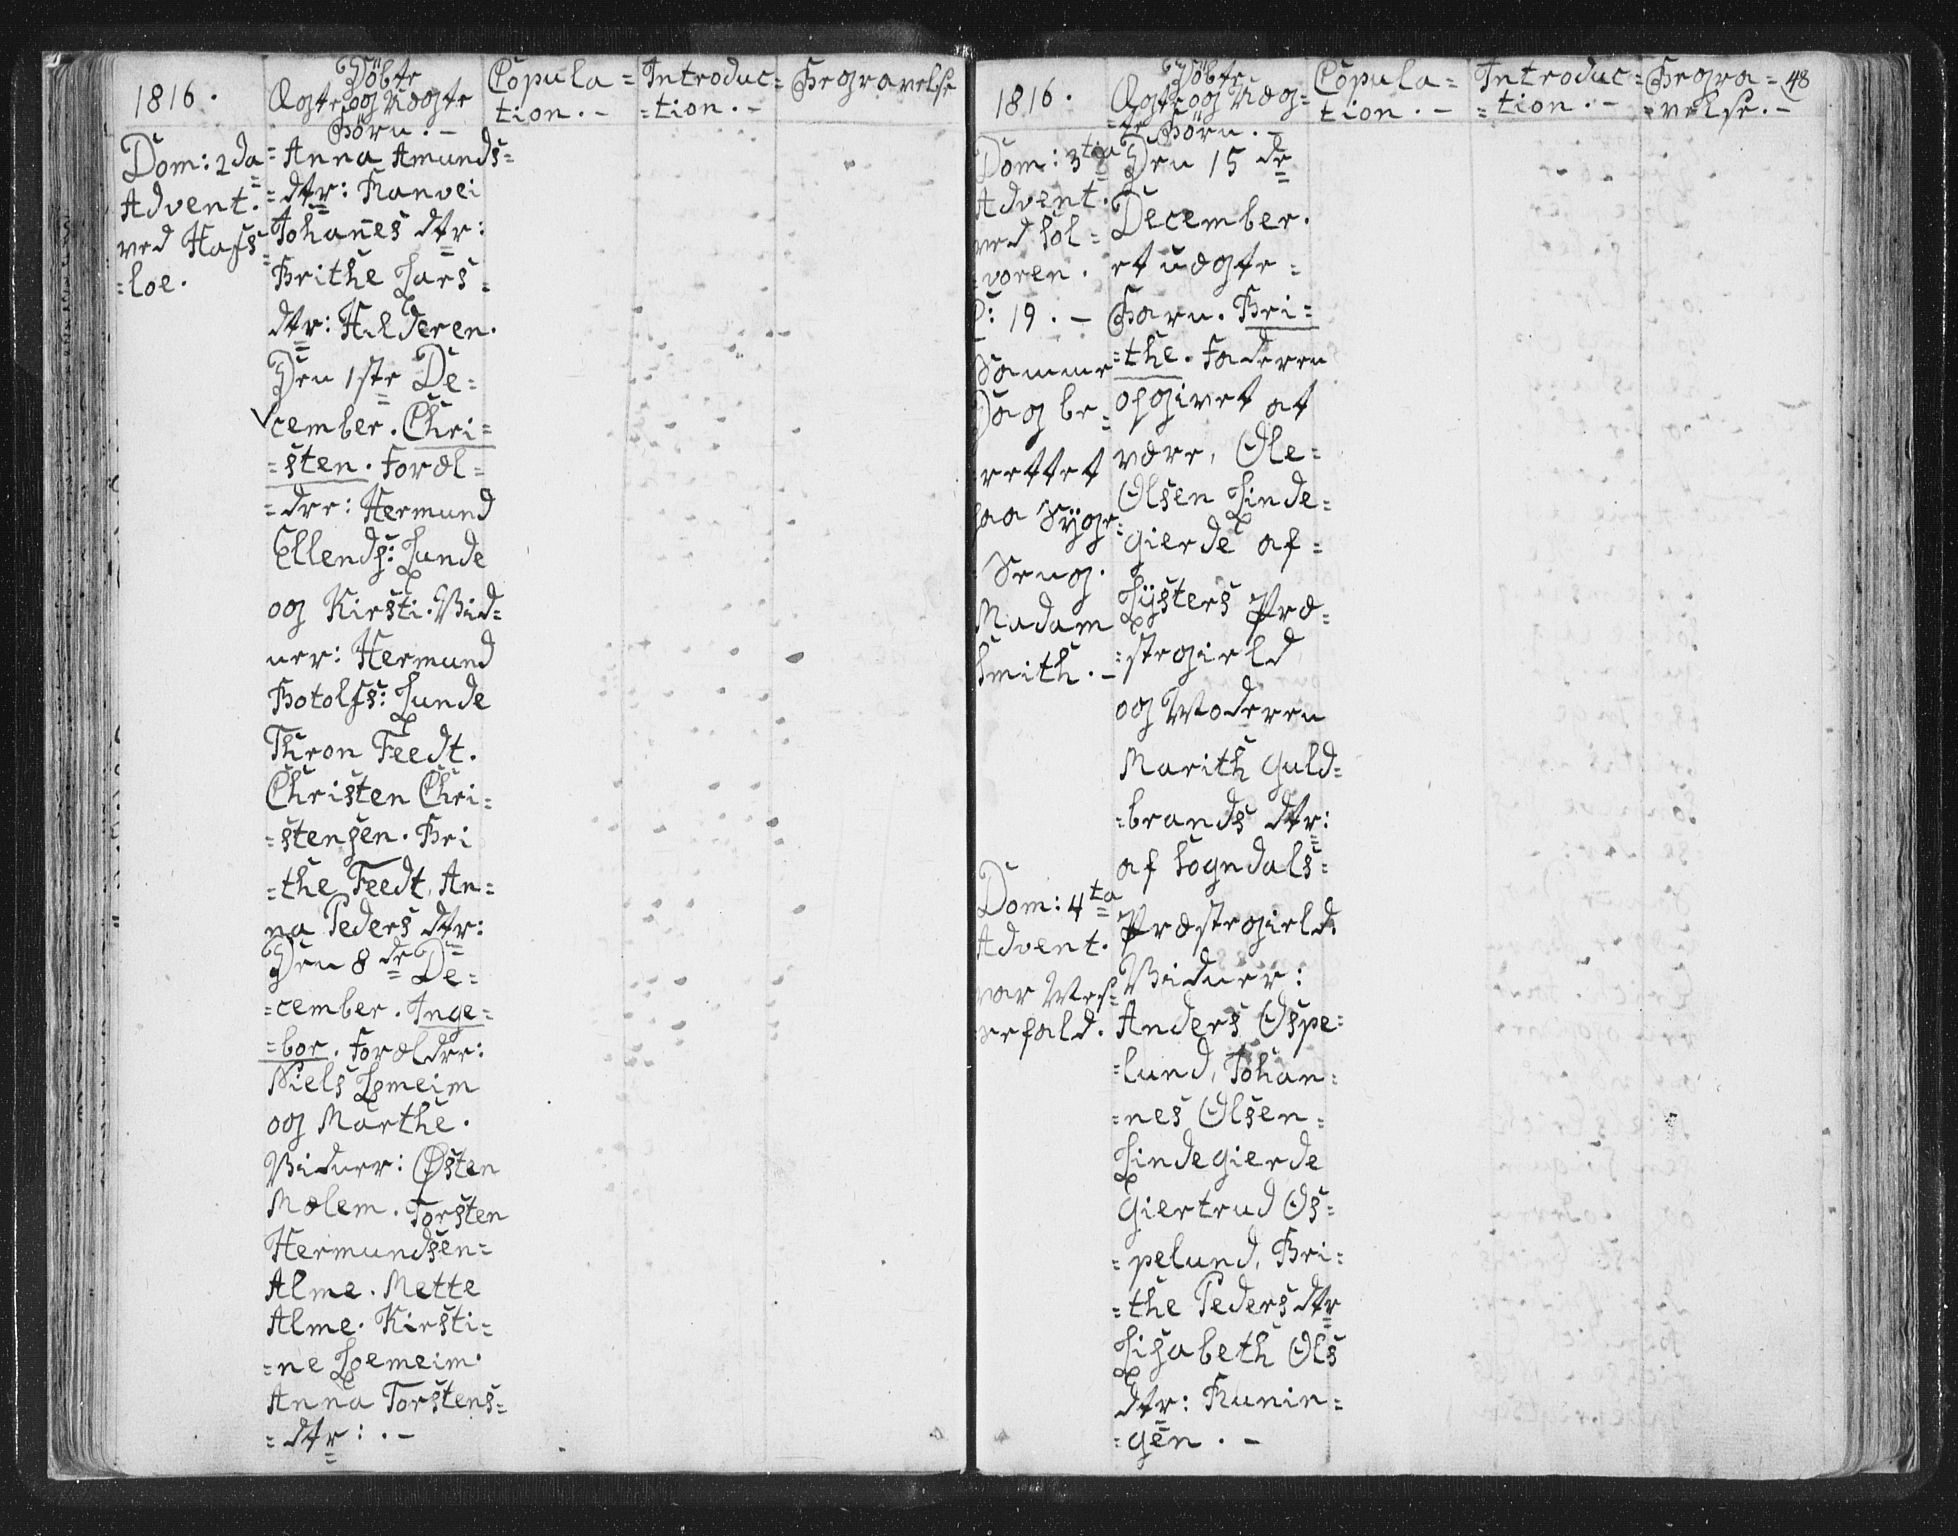 1816.
Döbte
Ægte og Uægte
Börn. -
Copula =
tion. -
Introduc =
= tion. -
Begravelse
Dom: 2da
Advent.
ved Hafs =
= loe.
= Anna Amunds =
= dtr: Ranvei
Johanes dtr:
Brithe Lars =
dtr: Hilderen.
Den 1ste De =
cember. Chri =
= sten. Foræl =
= dre: Hermund
Ellends: Lunde
og Kirsti. Vid =
ner: Hermund
Botolfs: Lunde
Thron Feedt.
Christen Chri =
= stensen. Bri
= the Feedt, An =
na Peders dtr:
Den 8de De =
= cember. Inge =
= bor. Forældre:
Niels Lomeim
og Marthe.
Vidner: Østen
Mælem. Torsten
Hermundsen =
Alme. Mette
Alme. Kirsti =
= ne Lomeim.
Anna Torstens =
= dtr: . -
1816.
Döbte
Ægte og Uæg =
= te Börn. -
Copula =
tion. -
Introduc =
= tion. -
Begra =
= velse. -
48
Dom: 3tia
Advent.
ved Sol =
= voren.
D: 19. -
Samme
Dag be =
rettet
paa Syge =
Seng.
Madam
Smith. -
Dom: 4ta
Advent.
var Mes =
sefald.
Den 15de
December.
et uægte =
Barn. Bri =
= the. Faderen
opgivet at
være, Ole =
Olsen Linde =
gierde af =
Lysters Præ =
= stegield
og Moderen
Marith Guld =
= brands dtr:
af Sogndals =
Præstegield.
Vidner:
Anders Ospe =
= lund, Johan =
= nes Olsen =
Lindegierde
Giertrud Os =
= pelund, Bri =
= the Peders dtr
Lisabeth Ols
dtr: Runin =
= gen. -